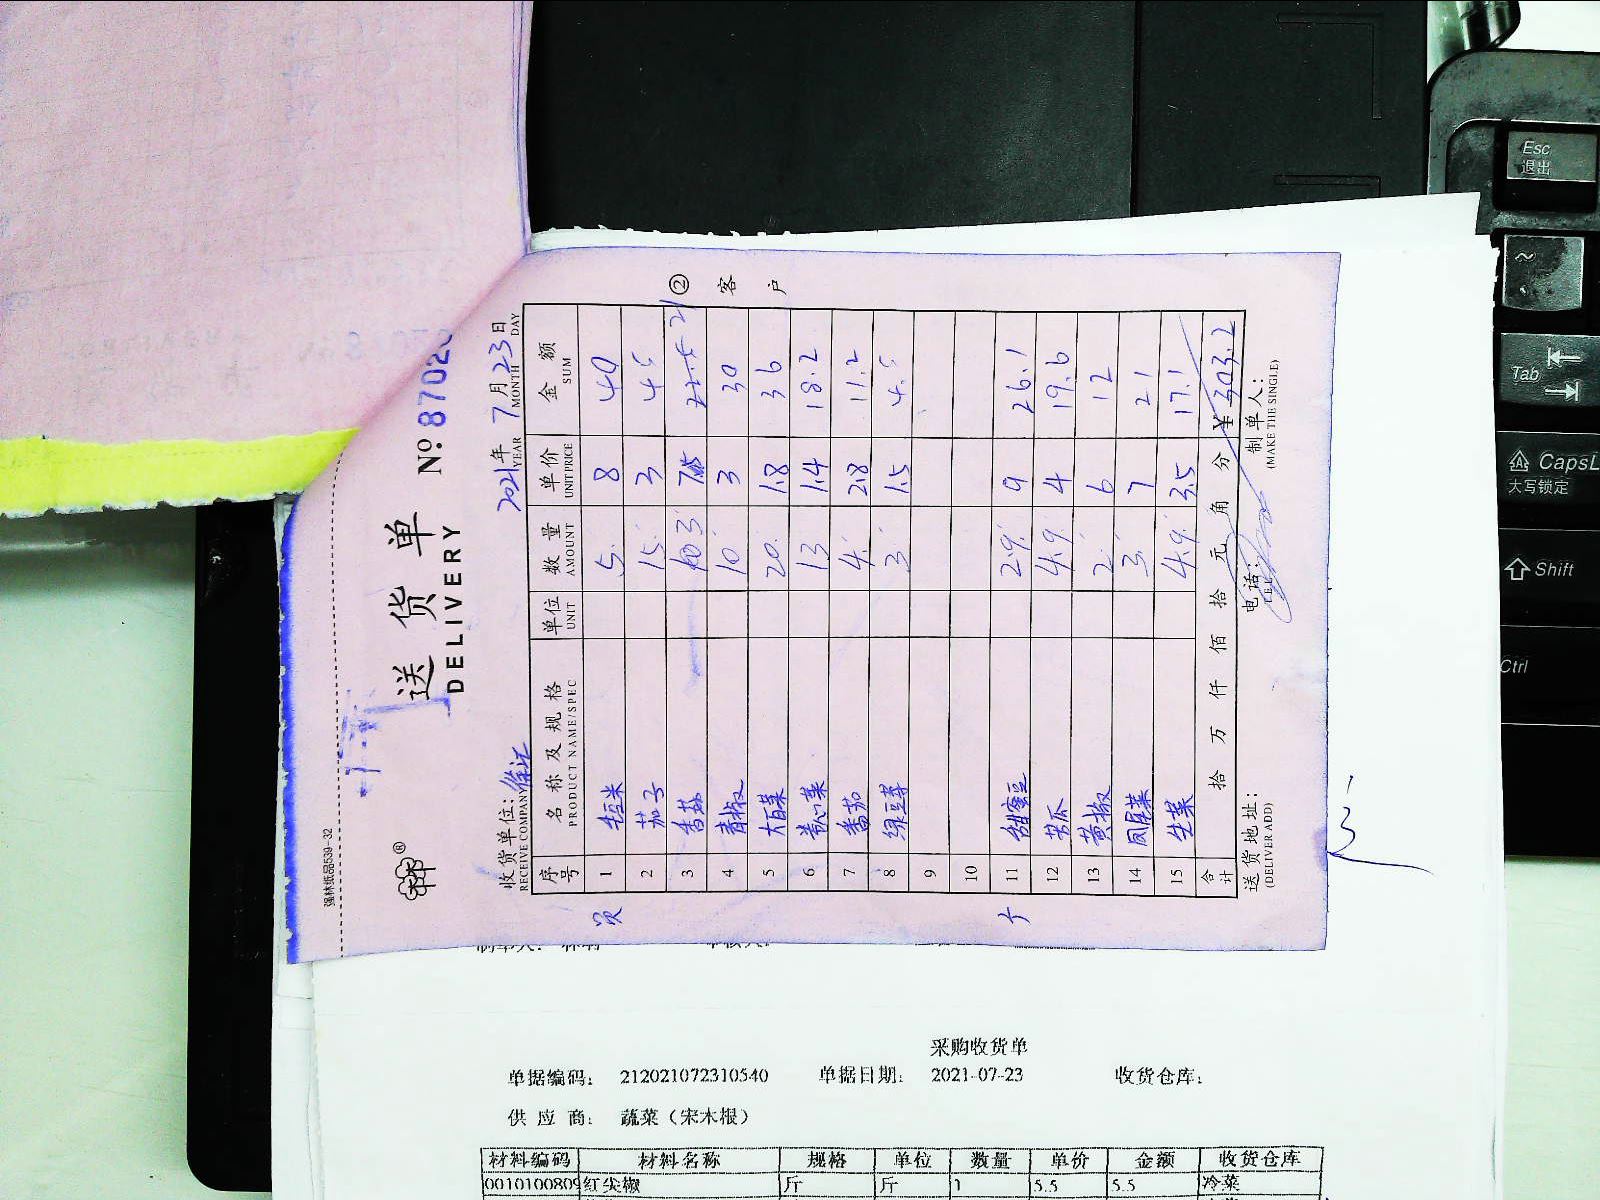 强林纸品539-32
送货单
DELIVERY
№ 87028
收货单位:
RECEIVE COMPANY
2021年 7月 23日
YEAR MONTH DAY
序号 名称及规格 单位 数量 单价 金额
PRODUCT NAME/SPEC UNIT AMOUNT UNIT PRICE SUM
1 毛豆米 5 8 40
2 茄子 15 3 45
3 香菇 3 21
4 青椒 10 3 30
5 大白菜 20 1.8 36
6 卷心菜 13 1.4 18.2
7 番茄 4 2.8 11.2
8 绿豆芽 3 1.5 4.5
9
10
11 甜蜜豆 2.9 9 26.1
12 苦瓜 4.9 4 19.6
13 黄椒 2 6 12
14 凤尾菜 3 7 21
15 生菜 4.9 3.5 17.1
合计 拾 万 仟 佰 拾 元 角 分 ¥303.2
送货地址: 电话: 制单人:
(DELIVER ADD) TEL (MAKE THE SINGLE)
② 客户
3
采购收货单
单据编码: 212021072310540 单据日期: 2021-07-23 收货仓库:
供应商: 蔬菜(宋木根)
材料编码 材料名称 规格 单位 数量 单价 金额 收货仓库
0010100809 红尖椒 斤 斤 1 5.5 5.5 冷菜
Esc
退出
~
Tab
CapsL
大写锁定
Shift
Ctrl